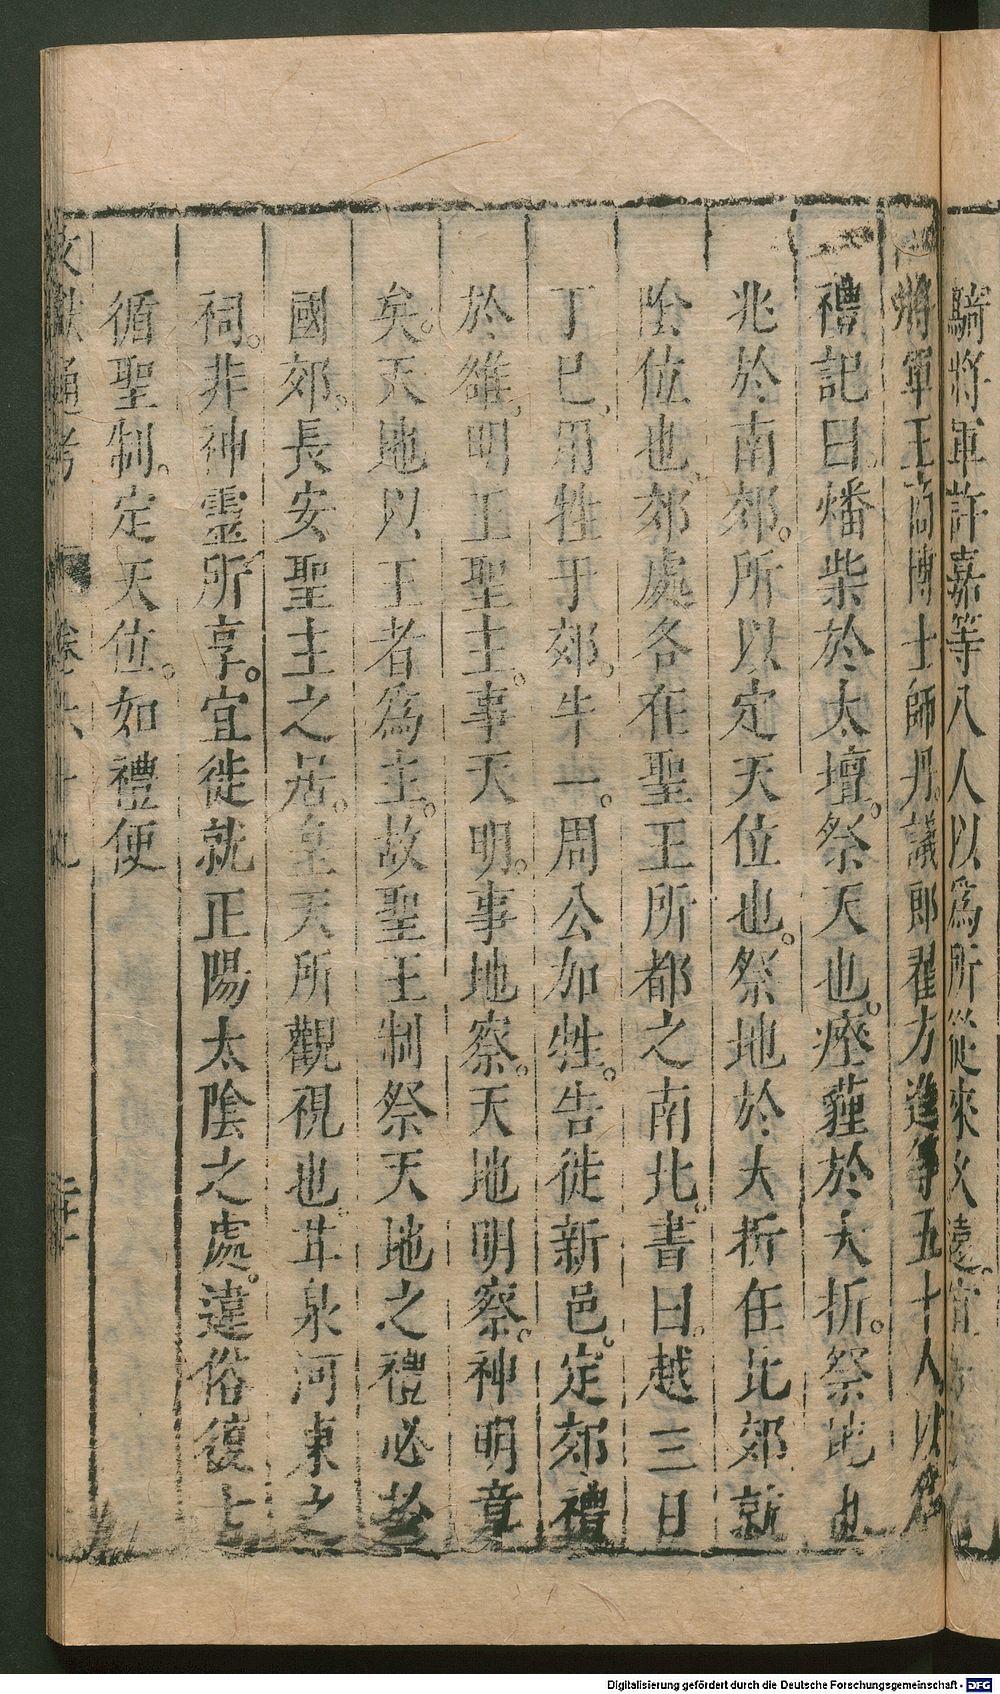 騎將軍許嘉等八人以爲所從來久遠。宜
將軍王商博士師丹。議郎翟方進等五十人以爲
禮記曰。燔柴於太壇。祭天也。瘞薶於大折。祭地也
兆於南郊。所以定天位也。祭地於大折在北郊就
陰位也。郊處各在聖王所都之南北。書曰。越三日
丁巳。用牲于郊。牛一。周公加牲。告徙新邑。定郊禮
於雒。明王聖主。事天明。事地察。天地明察。神明章
矣。天地以王者爲主。故聖王制祭天地之禮必於
國郊。長安聖主之居。皇天所觀視也。甘泉河東之
祠。非神靈所享。宜徙就正陽太陰之處。違俗復古
循聖制。定天位。如禮便
文獻通考 卷六十九
Digitalisierung gefördert durch die Deutsche Forschungsgemeinschaft - DFG